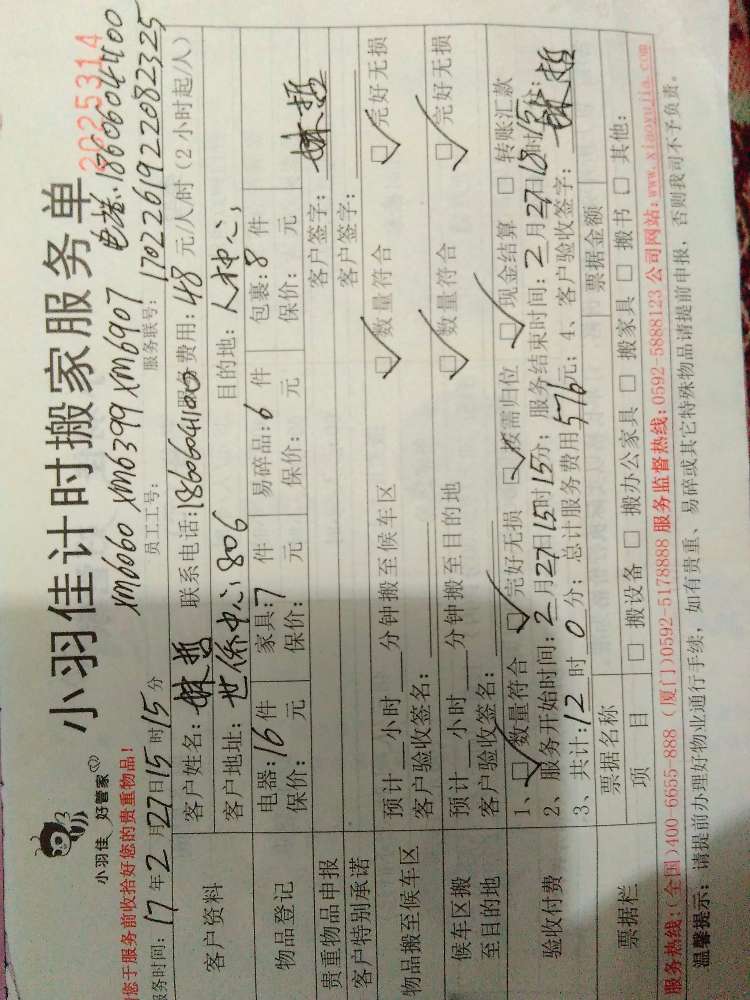 小羽佳 好管家
小羽佳计时搬家服务单
2025314
您于服务前收拾好您的贵重物品!
XM6060 XM6399 XM6907 电话:18606044100
服务时间:17年2月27日15时15分 员工工号: 服务联号:1702261922082325
客户资料
客户姓名: 联系电话:18606044100 服务费用:48元/人/时(2小时起/人)
客户地址:世侨中心806 目的地:人才中心
物品登记
电器:16件 家具:7件 易碎品:6件 包裹:8件
保价: 元 保价: 元 保价: 元 保价: 元
贵重物品申报 客户签字:
客户特别承诺 客户签字:
物品搬至候车区
预计 小时 分钟搬至候车区 □数量符合 □完好无损
客户验收签名:
候车区搬至目的地
预计 小时 分钟搬至目的地 □数量符合 □完好无损
客户验收签名:
验收付费
1、□数量符合 □完好无损 □按需归位 □现金结算 □转账汇款
2、服务开始时间:2月27日15时15分;服务结束时间:2月27日18时15分;
3、共计:12时0分;总计服务费用576元;4、客户验收签字:
票据栏
票据名称 票据金额
项目 □搬设备 □搬办公家具 □搬家具 □搬书 □其他:
服务热线:(全国)400-6655-888 (厦门)0592-5178888 服务监督热线:0592-5888123 公司网站:www.xiaoyujia.com
温馨提示:请提前办理好物业通行手续,如有贵重、易碎或其它特殊物品请提前申报,否则我司不予负责。